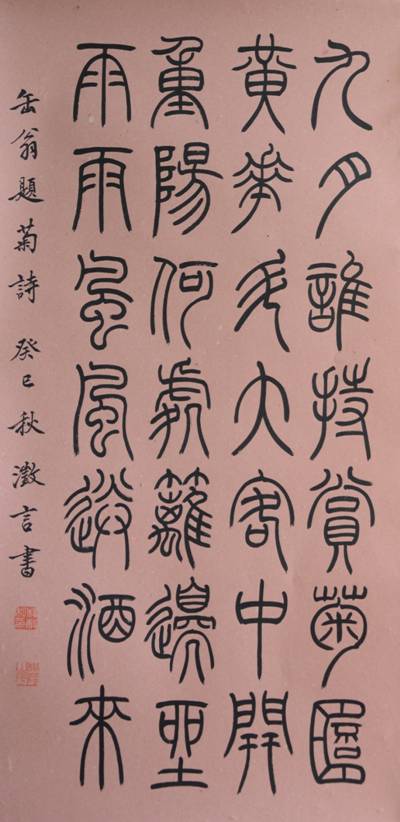 九月誰持賞菊
黃華斗大客中開
重陽何處籬邊坐
雨雨風風送酒來
缶翁題菊詩 癸巳秋澂言書